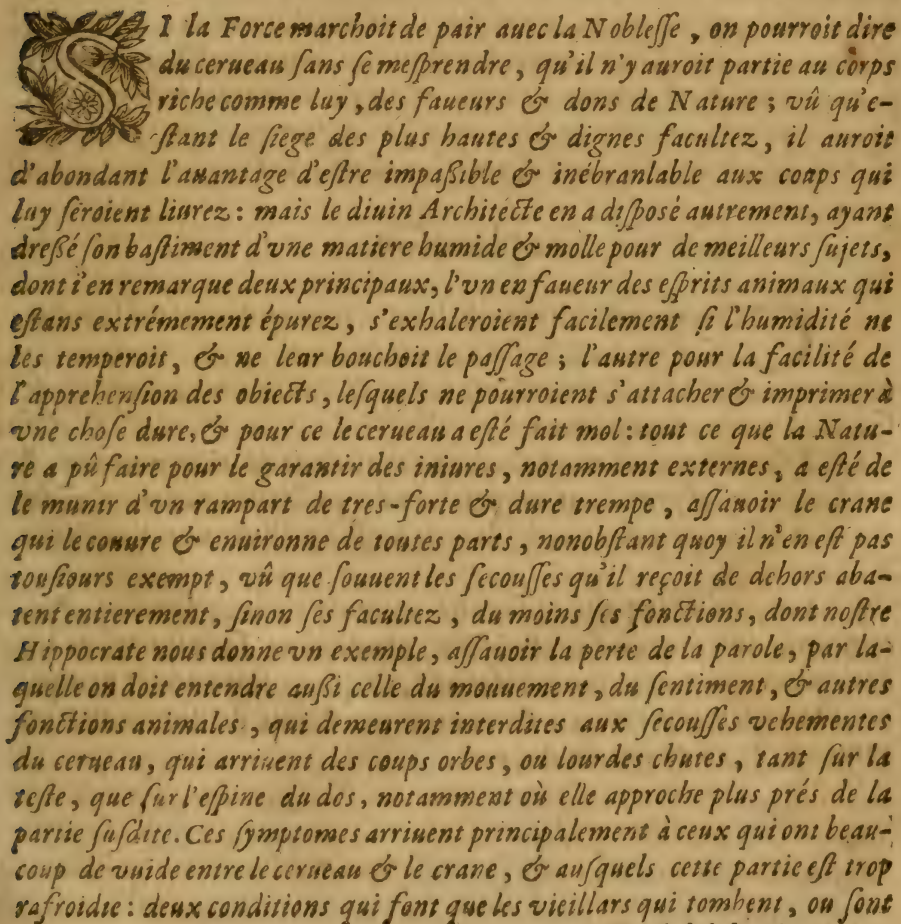 SI la Force marchoit de pair auec la Noblesse, on pourroit dire
du cerueau sans se mesprendre, qu'il n'y auroit partie au corps
riche comme luy, des faueurs & dons de Nature; vû qu'e-
stant le siege des plus hautes & dignes facultez, il auroit
d'abondant l'auantage d'estre impassible & inébranlable aux coups qui
luy seroient liurez: mais le diuin Architecte en a disposé autrement, ayant
dressé son bastiment d'vne matiere humide & molle pour de meilleurs sujets,
dont i'en remarque deux principaux, l'vn en faueur des esprits animaux qui
estans extrémement épurez, s'exhaleroient facilement si l'humidité ne
les temperoit, & ne leur bouchoit le passage; l'autre pour la facilité de
l'apprehension des obiects, lesquels ne pourroient s'attacher & imprimer à
vne chose dure, & pour ce le cerueau a esté fait mol: tout ce que la Natu-
re a pû faire pour le garantir des iniures, notamment externes, a esté de
le munir d'vn rampart de tres-forte & dure trempe, assauoir le crane
qui le couure & enuironne de toutes parts, nonobstant quoy il n'en est pas
tousiours exempt, vû que souuent les secousses qu'il reçoit de dehors aba-
tent entierement, sinon ses facultez, du moins ses fonctions, dont nostre
Hippocrate nous donne vn exemple, assauoir la perte de la parole, par la-
quelle on doit entendre aussi celle du mouuement, du sentiment, & autres
fonctions animales, qui demeurent interdites aux secousses vehementes
du cerueau, qui arriuent des coups orbes, ou lourdes chutes, tant sur la
teste, que sur l'espine du dos, notamment où elle approche plus prés de la
partie susdite. Ces symptomes arriuent principalement à ceux qui ont beau-
coup de vuide entre le cerueau & le crane, & ausquels cette partie est trop
rafroidie: deux conditions qui font que les vieillars qui tombent, ou sont